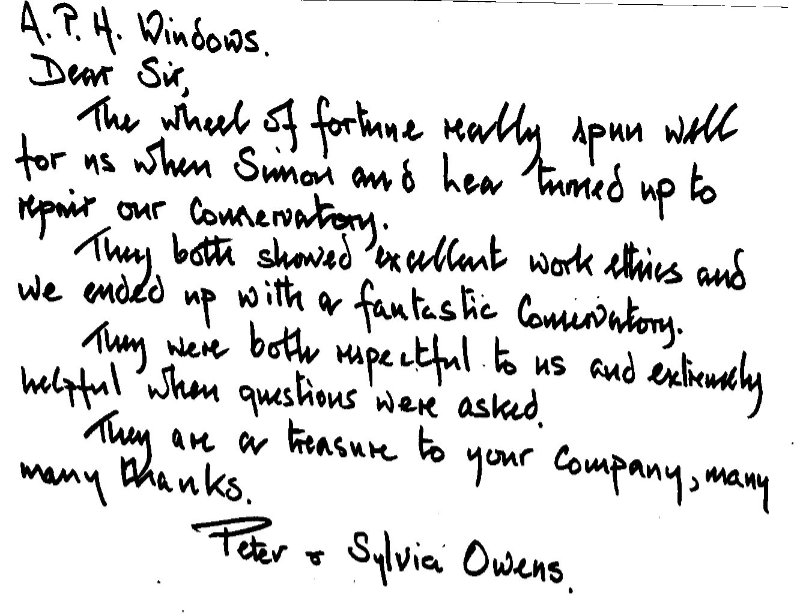 A.P.H. Windows.
Dear Sir,
The wheel of fortune really spun well
for us when Simon and turned up to
repair our Conservatory.
They both showed excellent work ethics and
we ended up with a fantastic Conservatory.
They were both respectful to us and extremely
helpful when questions were asked.
They are a treasure to your Company, many
many thanks.
Peter & Sylvia Owens.